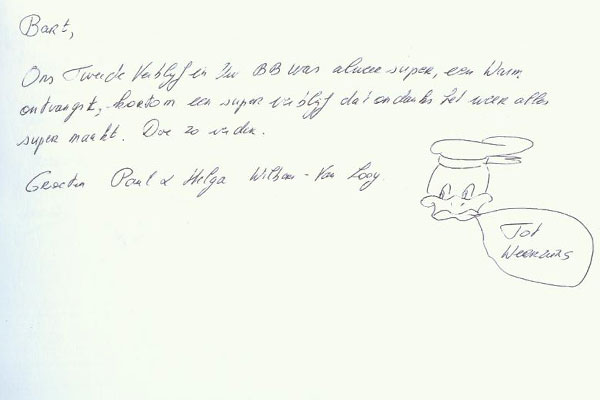 Bart,
Ons Tweede Verblijf in Uw BB was alweer super, een Warm
ontvangst, kortom een super verblijf dat ondanks het weer alles
super maakt. Doe zo verder.
Groeten Paul & Helga Van Looy
Tot
Weerziens